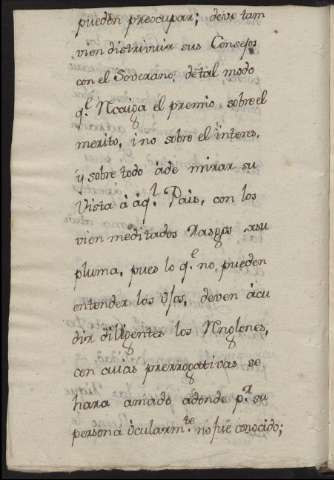 pueden preocupar; deve tam
vien distrivuir sus Consejos
con el Soverano, detal modo
q.^e Rcaiga el premio, sobre el
merito, i no sobre el interes,
y sobre todo áde mirar su
Vista â aq.^l Pais, con los
vien meditados Rasgos, asu
pluma, pues lo q.^e no, pueden
entender los ojos, deven ácu
dir diligentes los Rnglones,
con cuias prerrogativas se
hara amado adonde p.^r su
persona ôcularm.^te no fue conocido;